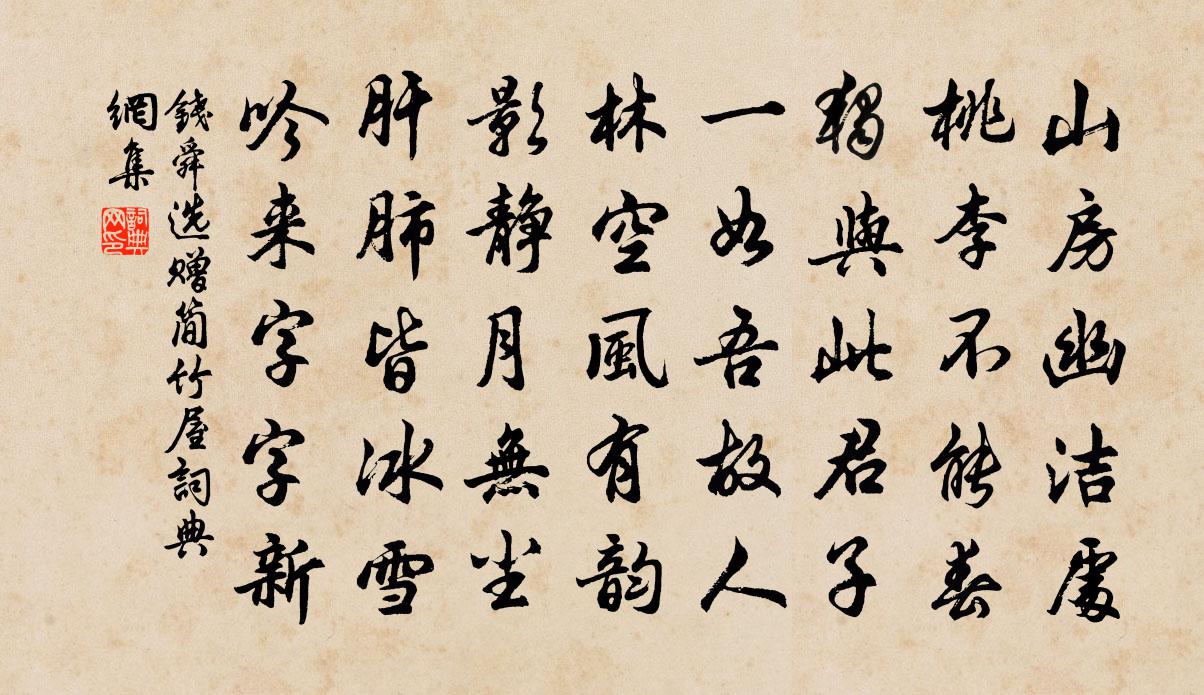 山房幽洁處
桃李不能春
獨與此君子
一如吾故人
林空風有韵
影静月無尘
肝肺皆冰雪
吟来字字新
錢舜选赠简竹屋詞典
網集
詞典
网印